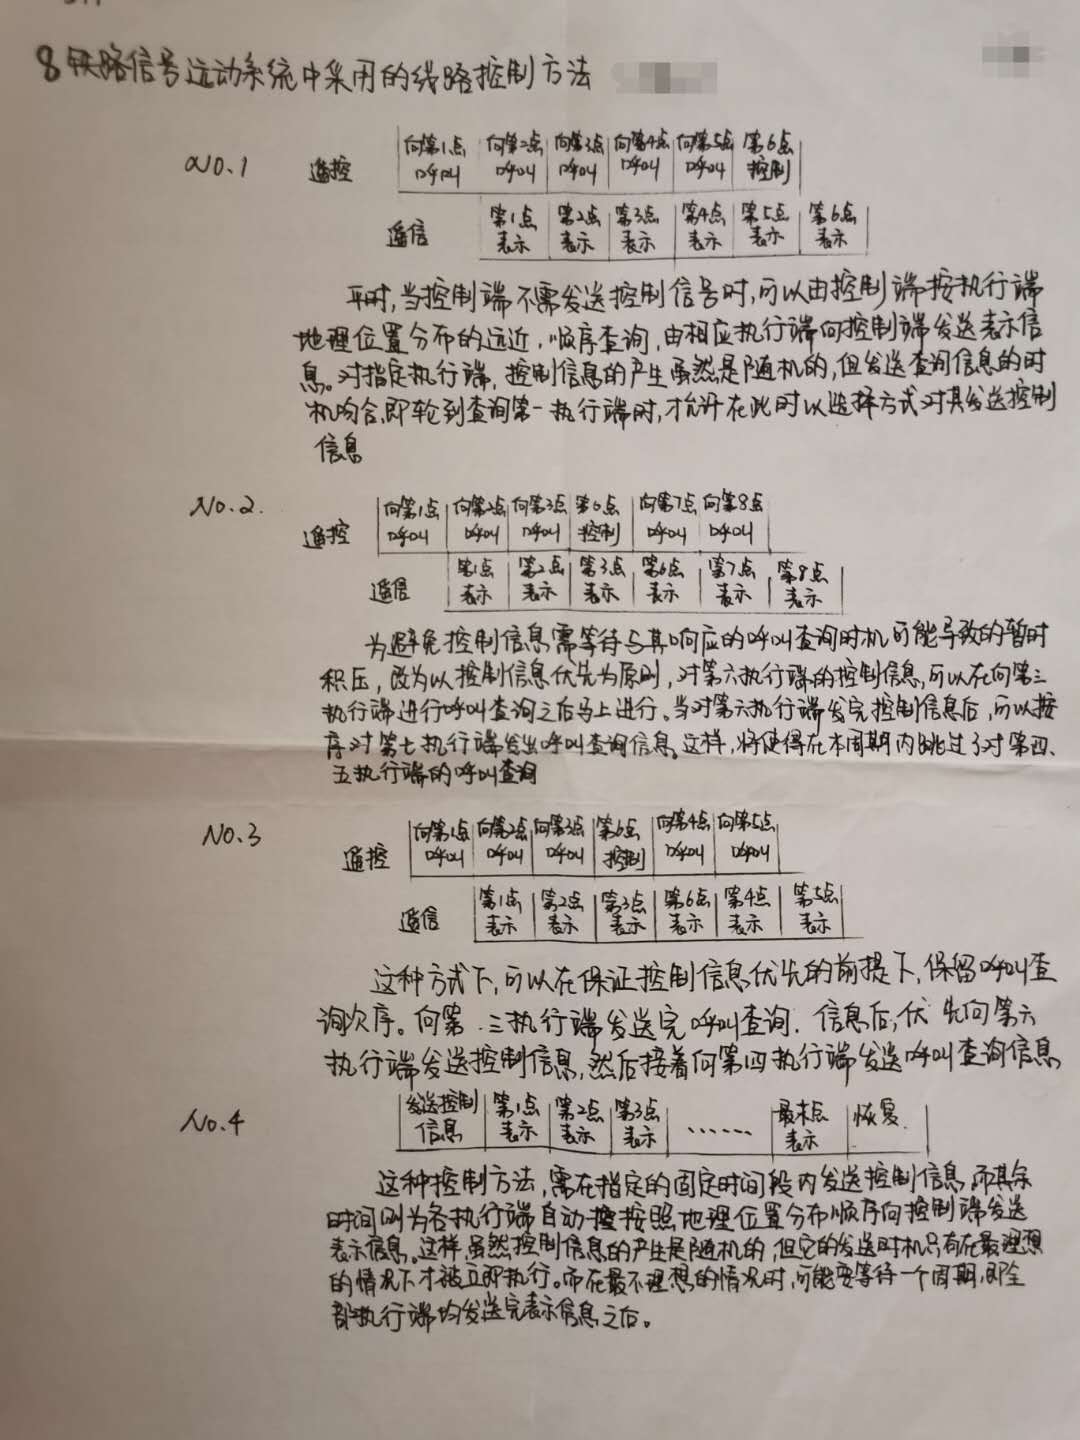 8 铁路信号远动系统中采用的线路控制方法
No.1 遥控 向第1点呼叫 向第2点呼叫 向第3点呼叫 向第4点呼叫 向第5点呼叫 第6点控制
遥信 第1点表示 第2点表示 第3点表示 第4点表示 第5点表示 第6点表示
平时,当控制端不需发送控制信号时,可以由控制端按执行端
地理位置分布的远近,顺序查询,由相应执行端向控制端发送表示信
息。对指定执行端,控制信息的产生虽然是随机的,但发送查询信息的时
机均合,即轮到查询第一执行端时,才允许在此时以选择方式对其发送控制
信息
No.2. 遥控 向第1点呼叫 向第2点呼叫 向第3点呼叫 第6点控制 向第7点呼叫 向第8点呼叫
遥信 第1点表示 第2点表示 第3点表示 第6点表示 第7点表示 第8点表示
为避免控制信息需等待与其响应的呼叫查询时机可能导致的暂时
积压,改为以控制信息优先为原则,对第六执行端的控制信息,可以在向第三
执行端进行呼叫查询之后马上进行。当对第六执行端发完控制信息后,可以按
序对第七执行端发出呼叫查询信息。这样,将使得在本周期内跳过了对第四、
五执行端的呼叫查询
No.3 遥控 向第1点呼叫 向第2点呼叫 向第3点呼叫 第6点控制 向第4点呼叫 向第5点呼叫
遥信 第1点表示 第2点表示 第3点表示 第6点表示 第4点表示 第5点表示
这种方式下,可以在保证控制信息优先的前提下,保留呼叫查
询次序。向第三执行端发送完呼叫查询.信息后,优先向第六
执行端发送控制信息,然后接着向第四执行端发送呼叫查询信息
No.4 发送控制信息 第1点表示 第2点表示 第3点表示 …… 最末点表示 恢复.
这种控制方法,需在指定的固定时间段内发送控制信息,而其余
时间则为各执行端自动按照地理位置分布顺序向控制端发送
表示信息。这样,虽然控制信息的产生是随机的,但它的发送时机只有在最理想
的情况下才被立即执行。而在最不理想的情况时,可能要等待一个周期,即全
部执行端均发送完表示信息之后。